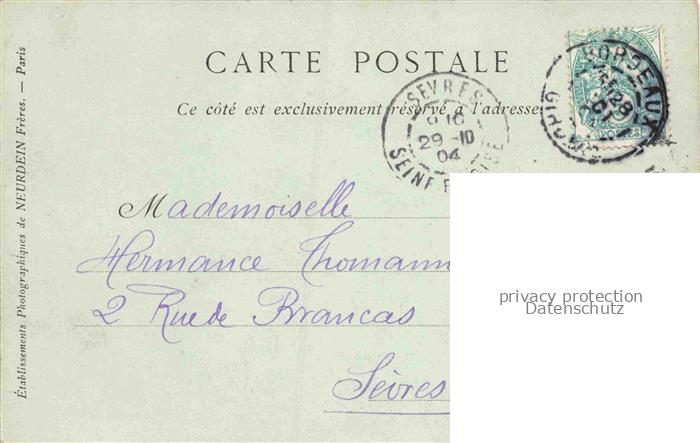 CARTE POSTALE
Ce côté est exclusivement réservé à l'adresse
SEVRES
9 16
29 -10
04
SEINE
BORDEAUX
29
POSTES
Mademoiselle
Hermance Thomann
2 Rue de Brancas
Sèvres
privacy protection
Datenschutz
Établissements Photographiques de NEURDEIN Frères. — Paris